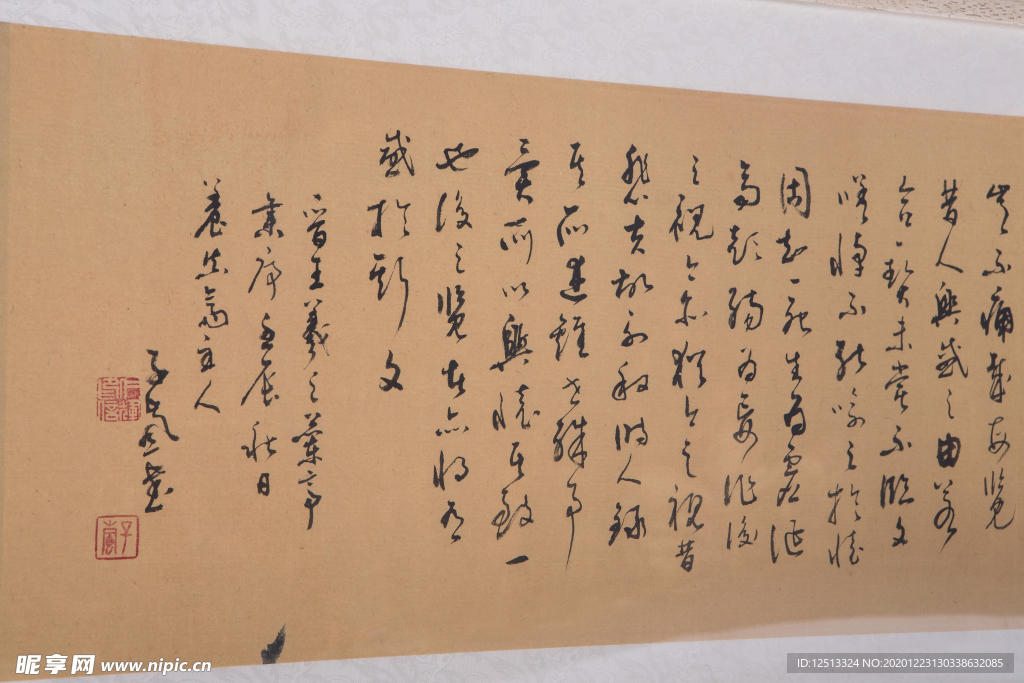 豈不痛哉每覽
昔人興感之由若
合一契未嘗不臨文
嗟悼不能喻之於懷
固知一死生為虛誕
齊彭殤為妄作後
之視今亦猶今之視昔
悲夫故列敘時人錄
其所述雖世殊事
異所以興懷其致一
也後之覽者亦將有
感於斯文
晉王羲之蘭亭
集序壬辰秋日
養真齋主人
子 書
昵享网 www.nipic.cn
ID:12513324 NO:20201223130338632085